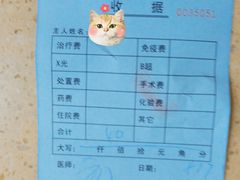 收 据 0035051
主人姓名
治疗费 免疫费
X光 B超
处置费 手术费
药费 化验费
住院费 其它
合计 60
大写: 仟 佰 拾 元 角 分
医师: 日期: